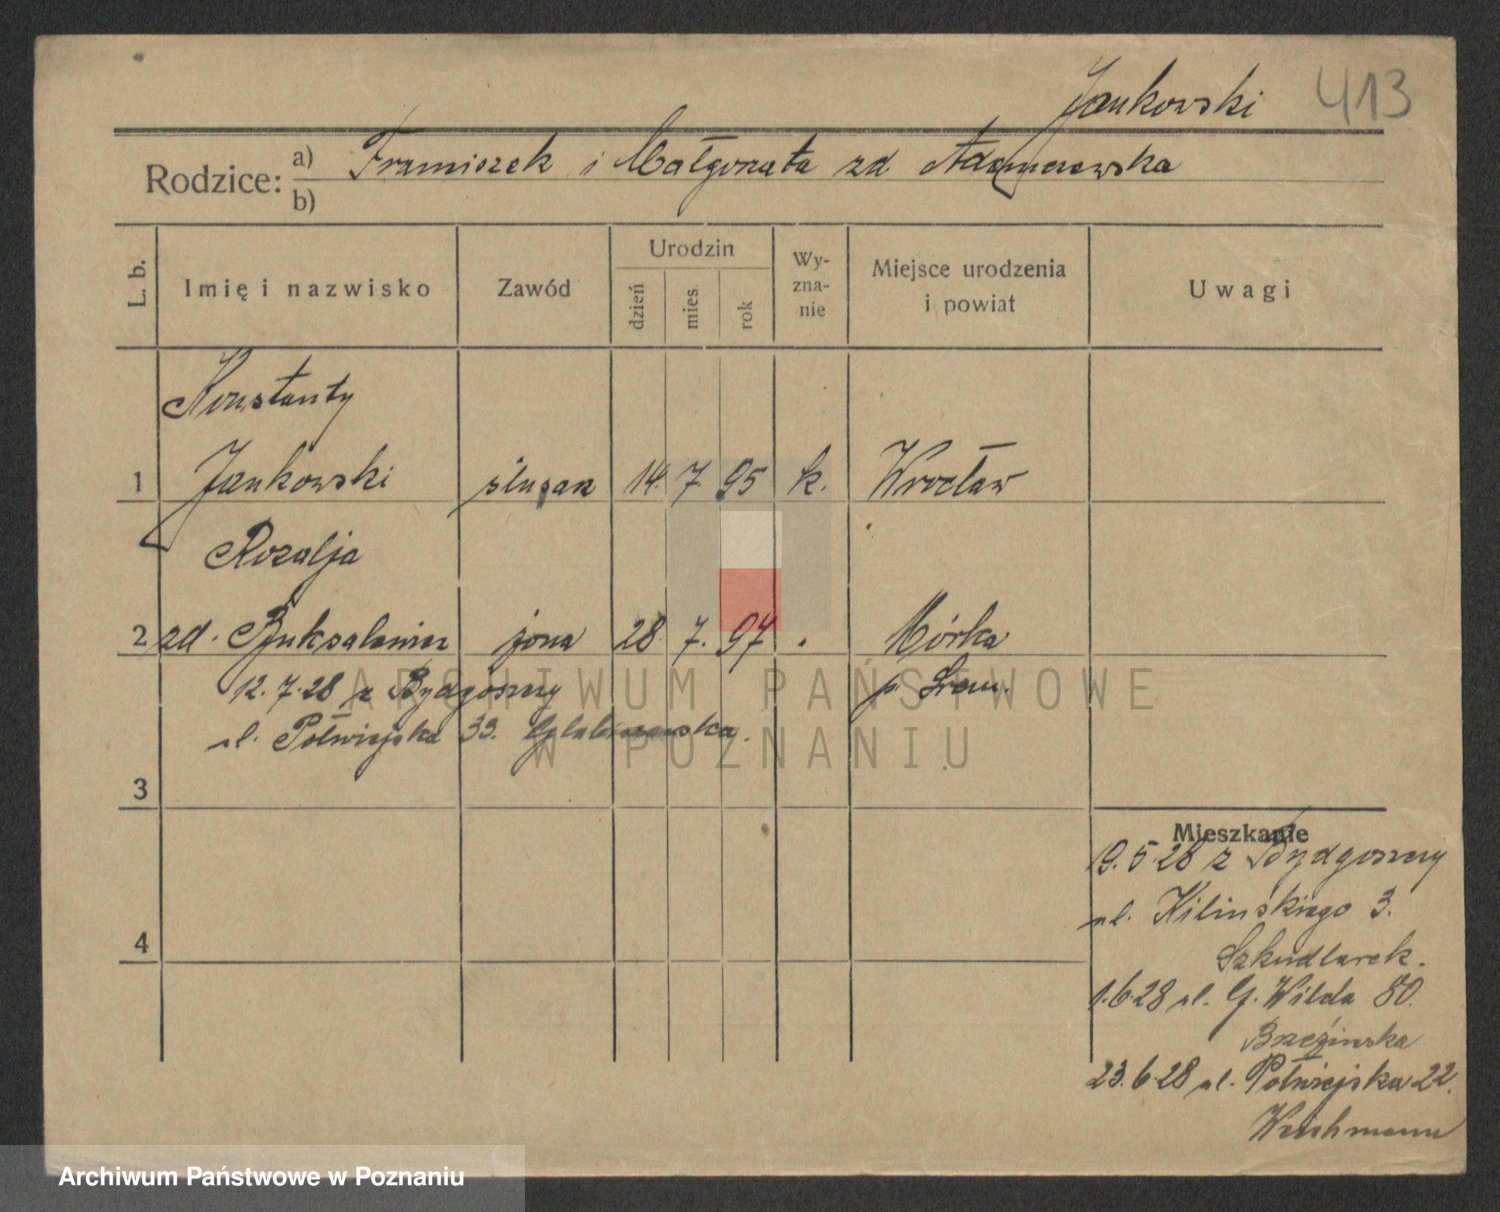 Jankowski 413
Rodzice: a) Franciszek i Małgorzata zd
b)
L. b.
Imię i nazwisko
Zawód
Urodzin
dzień
mies.
rok
Wy-
zna-
nie
Miejsce urodzenia
i powiat
Uwagi
Konstanty
1 Jankowski ślusarz 14. 7. 95 k. Wrocław
Rozalja
2 zd. żona 28. 7. 97 . Mórka
12.7.28 z Bydgoszczy p. Śrem.
ul. Półwiejska 33.
3
Mieszkanie
19.5.28 z Bydgoszczy
ul. Kilinskiego 3.
4
Szkudlarek.
1.6.28 ul. G. Wilda 80.
Brzezinska
23.6.28 ul. Półwiejska 22.
ARCHIWUM PAŃSTWOWE
W POZNANIU
Archiwum Państwowe w Poznaniu